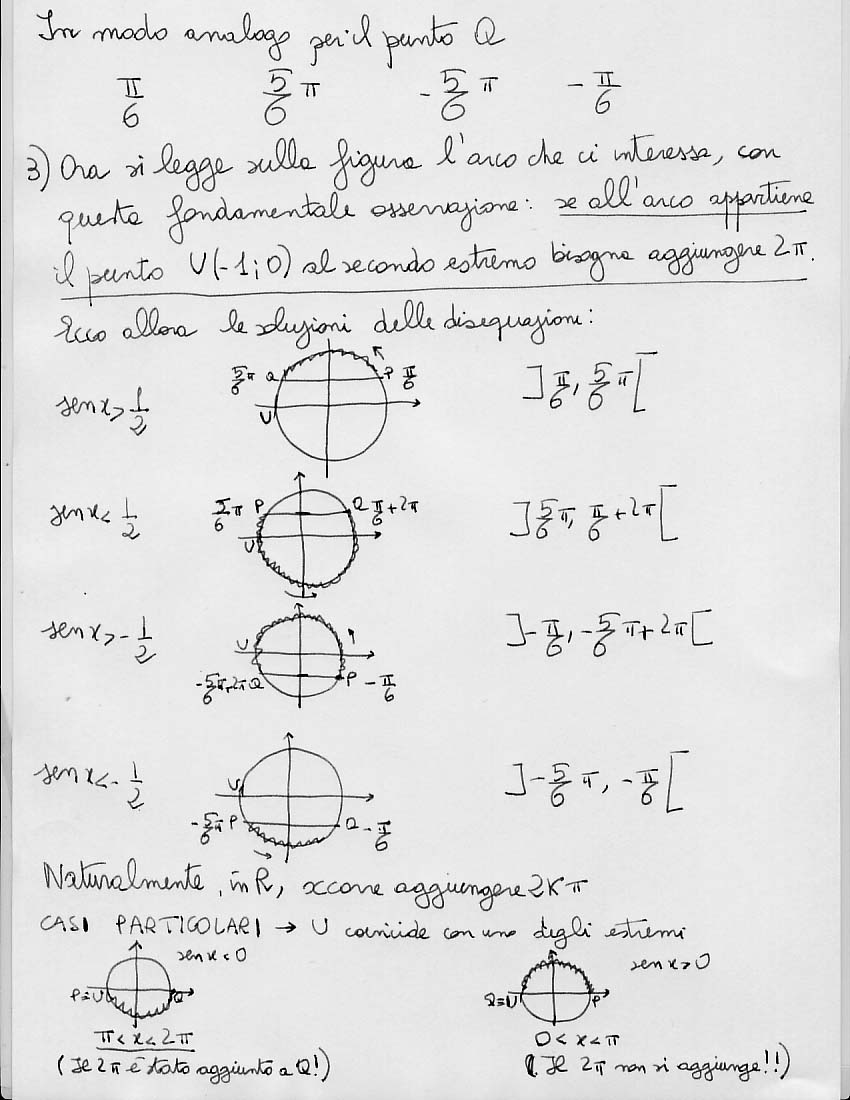 In modo analogo per il punto Q
π/6 5/6 π - 5/6 π - π/6
3) Ora si legge sulla figura l'arco che ci interessa, con
questa fondamentale osservazione: se all'arco appartiene
il punto U(-1;0) al secondo estremo bisogna aggiungere 2π.
Ecco allora le soluzioni delle disequazioni:
sen x > 1/2 5/6 π Q P π/6 U ]π/6, 5/6 π[
sen x < 1/2 5/6 π P Q π/6 + 2π U ]5/6 π, π/6 + 2π[
sen x > - 1/2 U -5/6 π+2π Q P - π/6 ]- π/6, - 5/6 π + 2π[
sen x < - 1/2 U - 5/6 π P Q - π/6 ]- 5/6 π, - π/6[
Naturalmente, in R, occorre aggiungere 2Kπ
CASI PARTICOLARI → U coincide con uno degli estremi
sen x < 0 sen x > 0
P≡U Q Q≡U P
π < x < 2π 0 < x < π
(Il 2π è stato aggiunto a Q!) (Il 2π non si aggiunge!!)